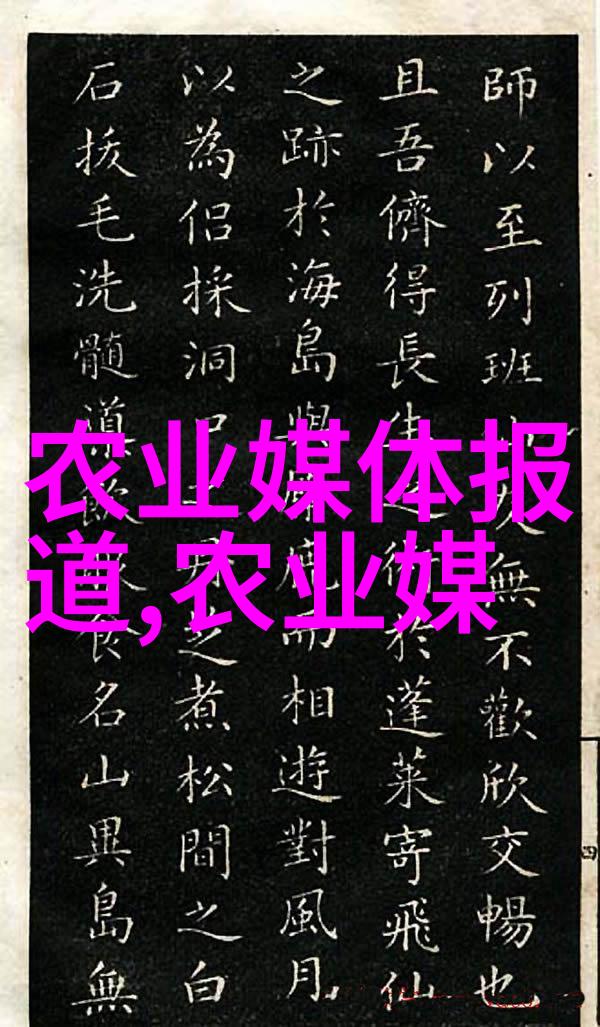 師以至列班無不歡欣交暢也
且吾儕得長生之術於蓬萊寄飛仙
之跡於海島與麋鹿而相遊對風月
以為侶採洞口之煮松間之白
石拔毛洗髓飲食名山異島無
农业媒体报
道,农业媒
四